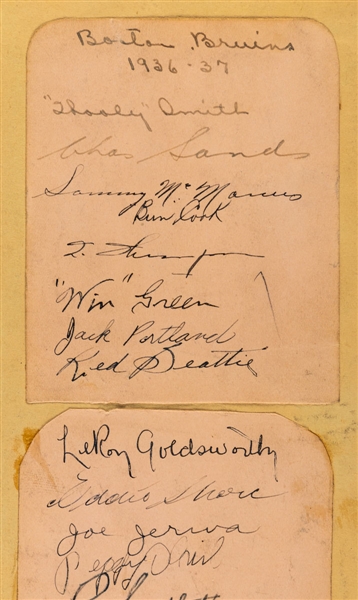 Boston Bruins
1936-37
"Hooly" Smith
Chas Sands
Sammy McManus
Bun Cook
T. Thompson
"Win" Green
Jack Portland
Red Beattie
LeRoy Goldsworthy
Eddie Shore
Joe Jerwa
Peggy O'Neil